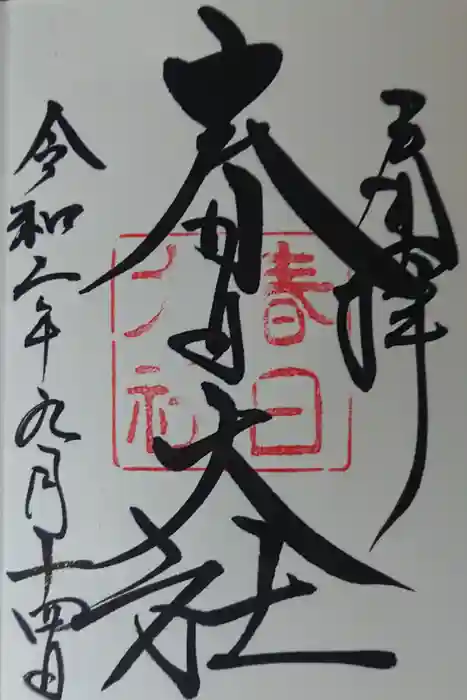 奉拝
春日大社
春日大社
令和二年九月十四日